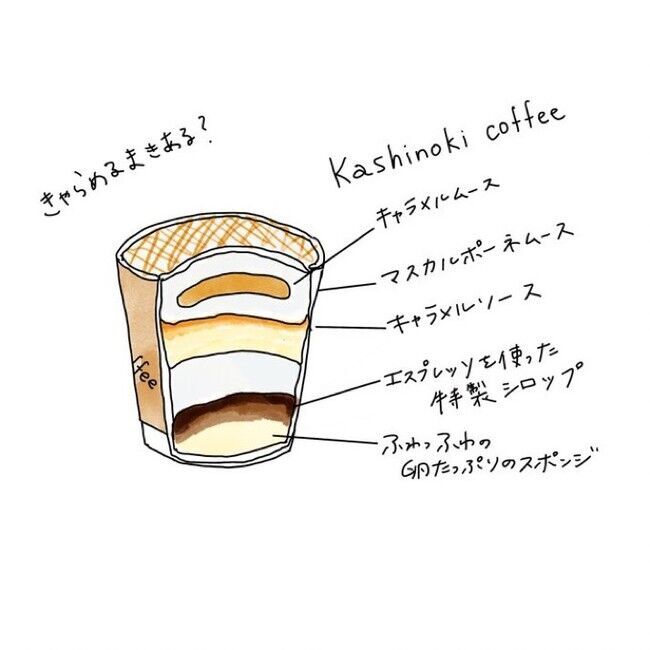 きゃらめるまきある?
Kashinoki coffee
キャラメルムース
マスカルポーネムース
キャラメルソース
エスプレッソを使った
特製シロップ
ふわっふわの
卵たっぷりのスポンジ
ffee